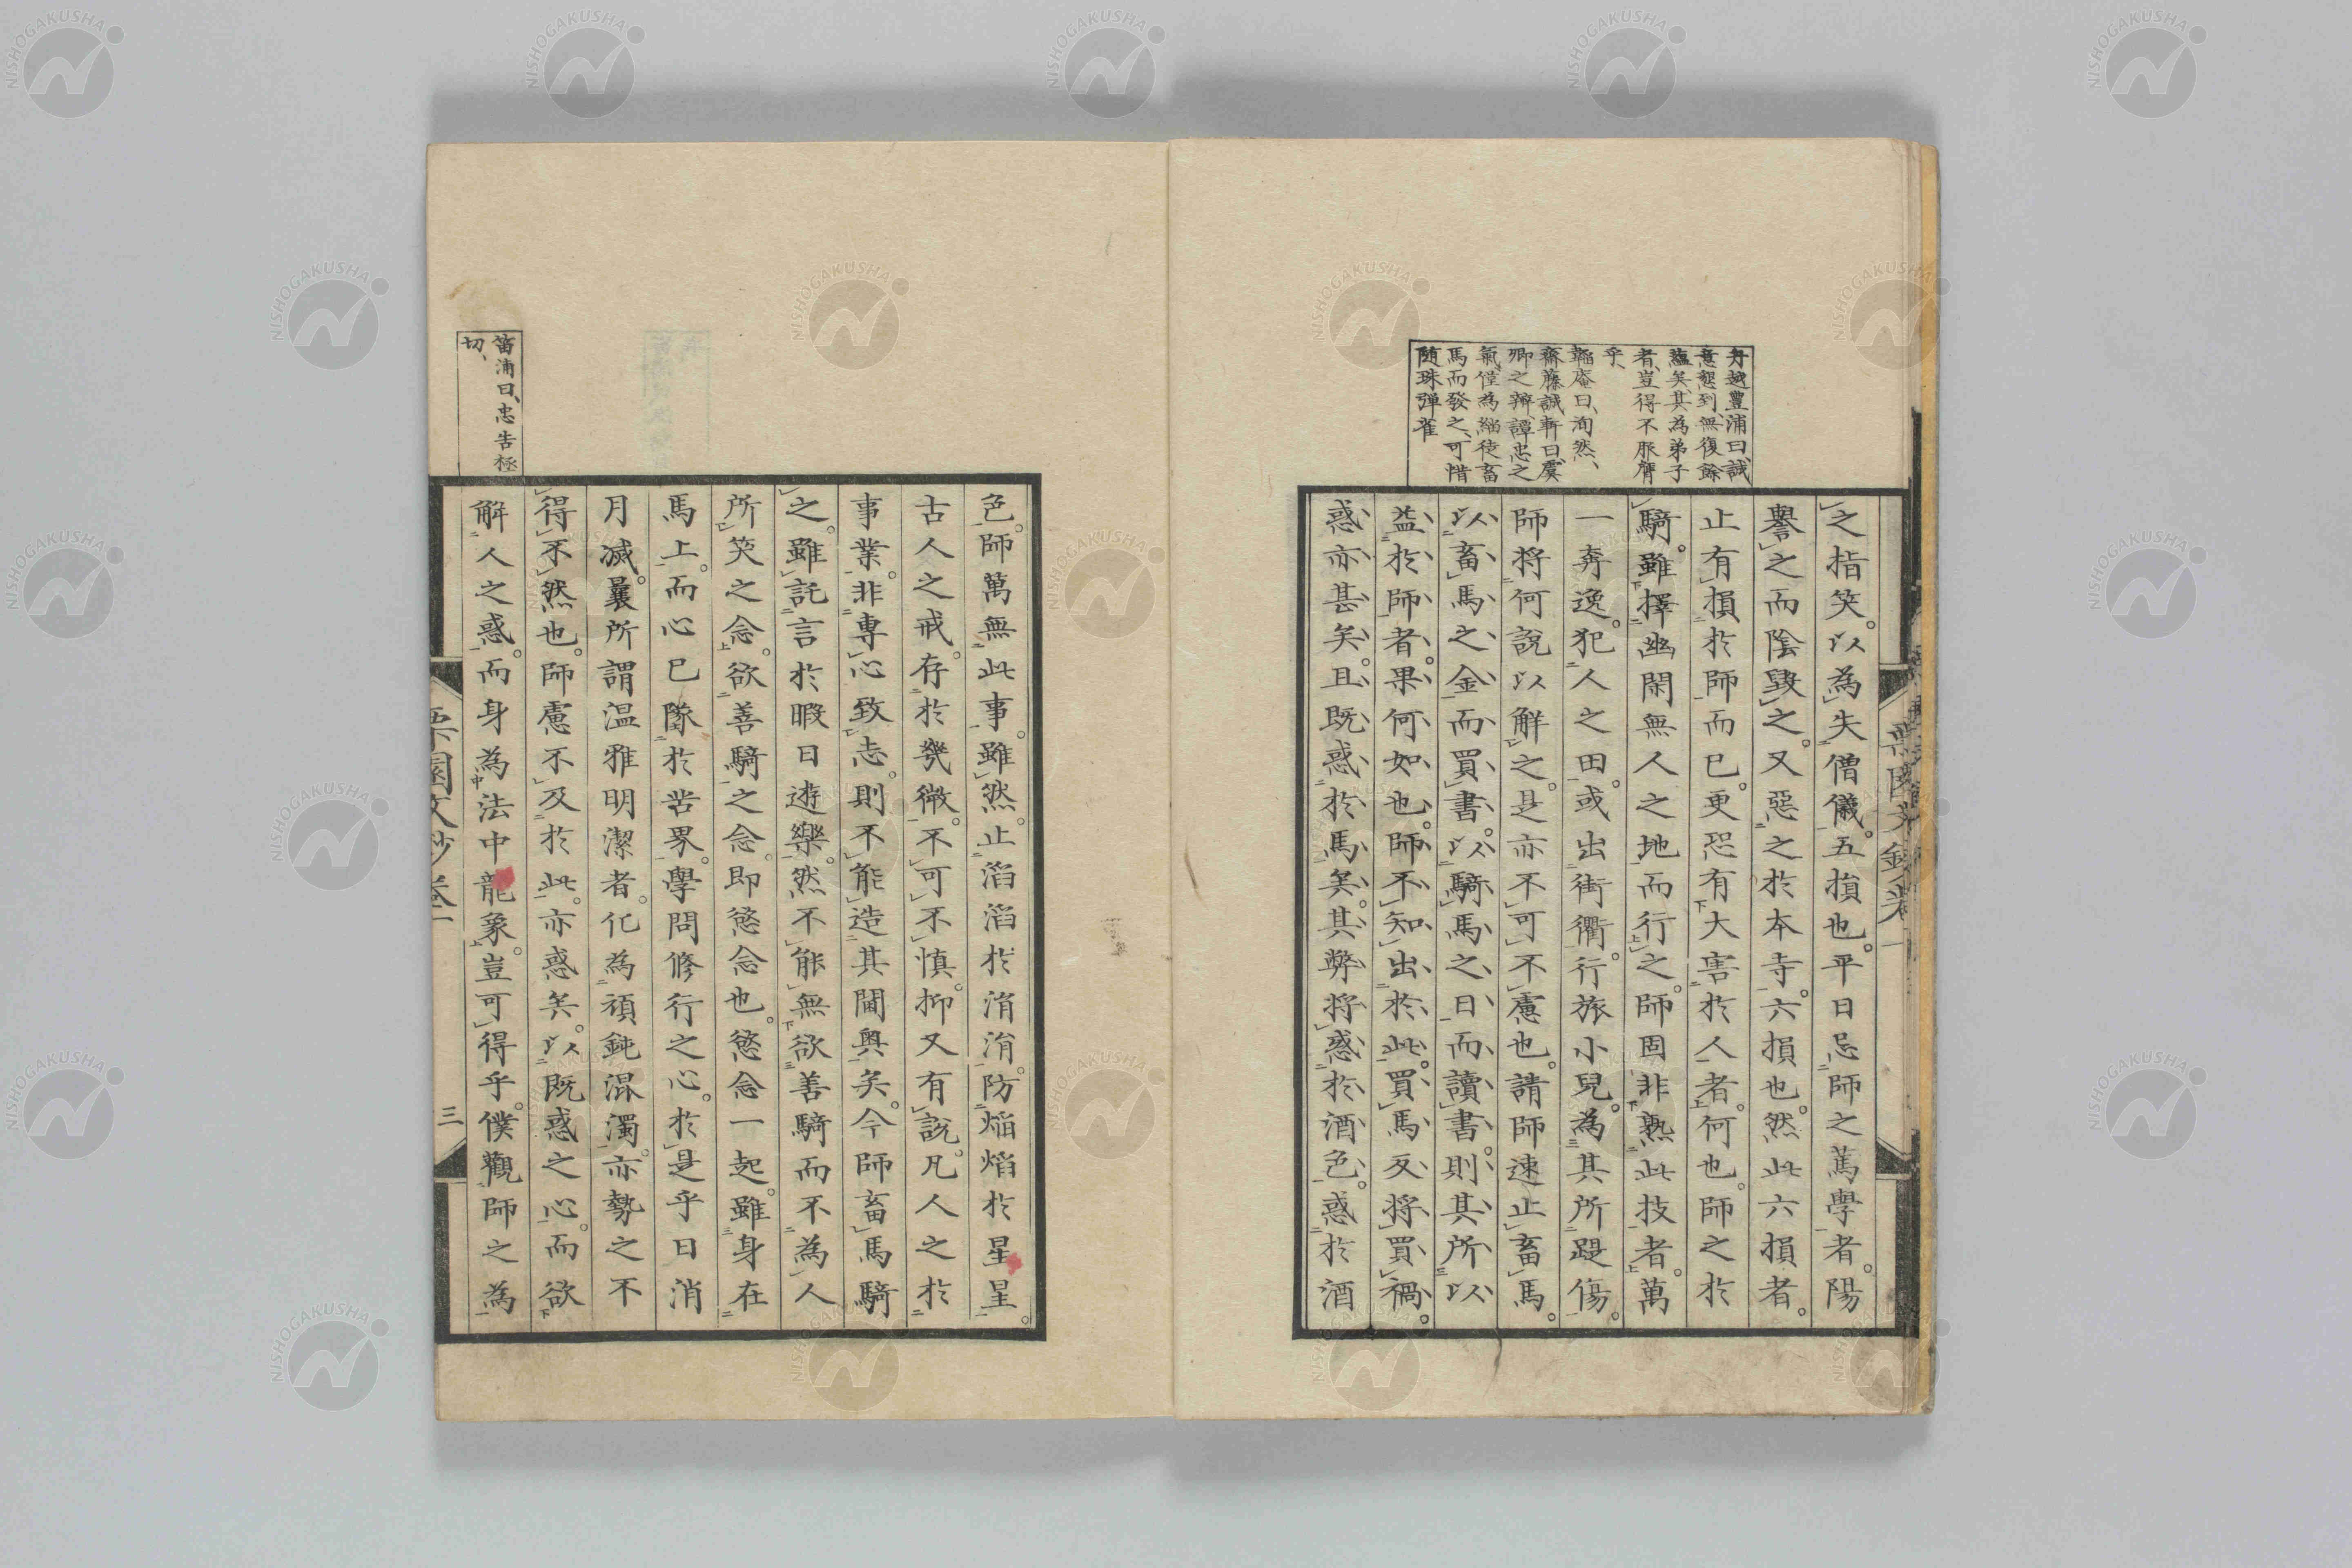 丹越豊浦曰、誠
意懇到、無復餘
蘊矣、其為弟子
者、豈得不服膺
乎、
韜庵曰、洵然、
齋藤誠軒曰、虞
卿之辯、譚忠之
氣、僅為緇徒畜
馬而發之、可惜
随珠彈雀
之指笑。以為失僧儀。五損也。平日忌師之篤學者。陽
譽之而陰毀之。又惡之於本寺。六損也。然此六損者。
止有損於師而已。更恐有大害於人者。何也。師之於
騎。雖擇幽閑無人之地而行之。師固非熟此技者。萬
一奔逸。犯人之田。或出街衢。行旅小兒。為其所踶傷。
師將何說以解之。是亦不可不慮也。請師速止畜馬。
以畜馬之金而買書。以騎馬之日而讀書。則其所以
益於師者。果何如也。師不知出於此。買馬反將買禍。
惑亦甚矣。且既惑於馬矣。其弊將惑於酒色。惑於酒
色。師萬無此事。雖然。止滔滔於涓涓。防焰焰於星星。
古人之戒。存於幾微。不可不慎。抑又有說。凡人之於
事業。非專心致志。則不能造其閫奧矣。今師畜馬騎
之。雖託言於暇日遊樂。然不能無欲善騎而不為人
所笑之念。欲善騎之念。即慾念也。慾念一起。雖身在
馬上。而心已墜於苦界。學問修行之心。於是乎日消
月滅。曩所謂溫雅明潔者。化為頑鈍混濁。亦勢之不
得不然也。師慮不及於此。亦惑矣。以既惑之心。而欲
解人之惑。而身為法中龍象。豈可得乎。僕觀師之為
笛浦曰、忠告極
切、
栗園文鈔卷一
三